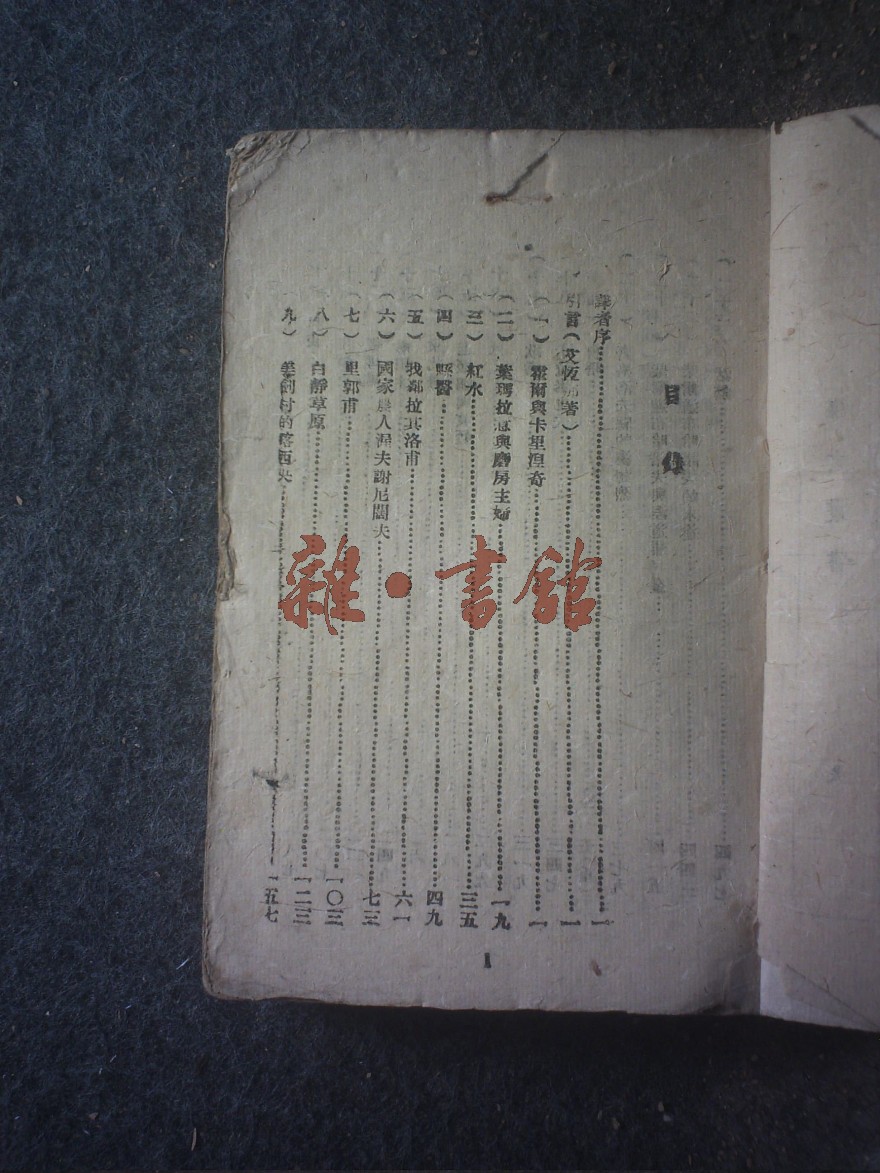 目錄
譯者序 一
引言(艾恆 著) 一
(一) 霍爾與卡里涅奇 一
(二) 葉瑪拉 與磨房主婦 一九
(三) 紅水 三五
(四) 縣醫 四九
(五) 我鄰拉其洛甫 六一
(六) 國家農人渥夫謝尼闊夫 七三
(七) 里郭甫 一〇三
(八) 白靜草原 一二三
九) 美劍村的喀西央 一五七
1
雜·書館